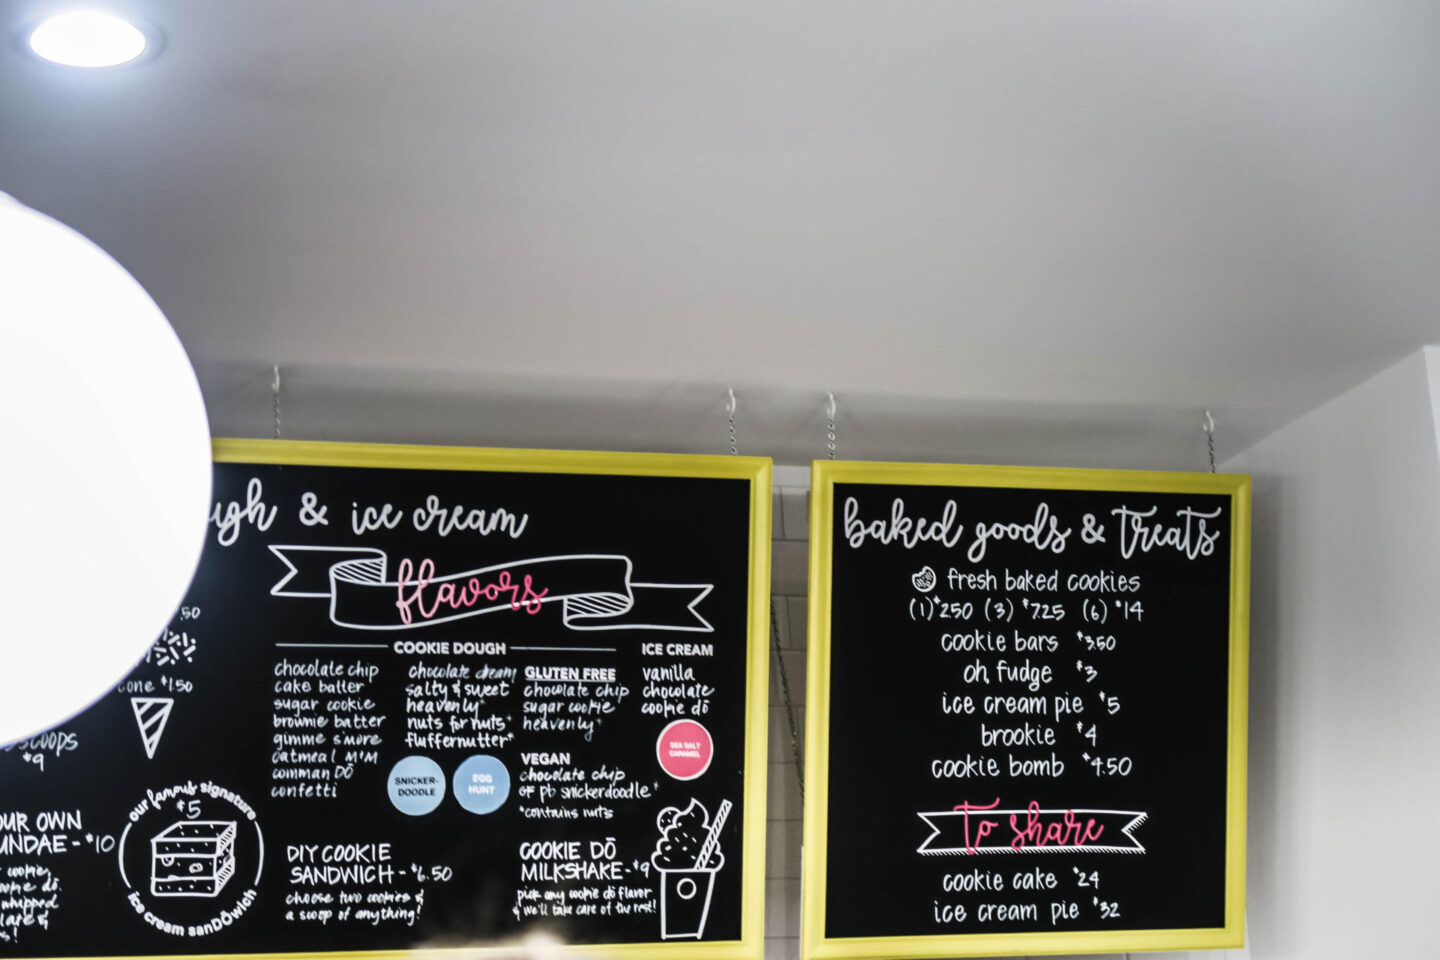 & ice cream
flavors
COOKIE DOUGH
chocolate chip
cake batter
sugar cookie
brownie batter
gimme s'more
oatmeal M'M
comman DŌ
confetti
chocolate dream
salty & sweet
heavenly*
nuts for nuts*
fluffernutter*
SNICKER-
DOODLE
EGG
HUNT
GLUTEN FREE
chocolate chip
sugar cookie
heavenly*
VEGAN
chocolate chip
GF pb snickerdoodle*
*contains nuts
ICE CREAM
vanilla
chocolate
cookie dō
SEA SALT
CARAMEL
.50
cone $1.50
SCOOPS
$9
OUR OWN
UNDAE - $10
cookie,
dō
whipped
&
our famous signature
$5
ice cream sanDŌwich
DIY COOKIE
SANDWICH - $6.50
choose two cookies &
a scoop of anything!
COOKIE DŌ
MILKSHAKE - $9
pick any cookie dō flavor
& we'll take care of the rest!
baked goods & treats
fresh baked cookies
(1) $2.50 (3) $7.25 (6) $14
cookie bars $3.50
oh, fudge $3
ice cream pie $5
brookie $4
cookie bomb $4.50
to share
cookie cake $24
ice cream pie $32